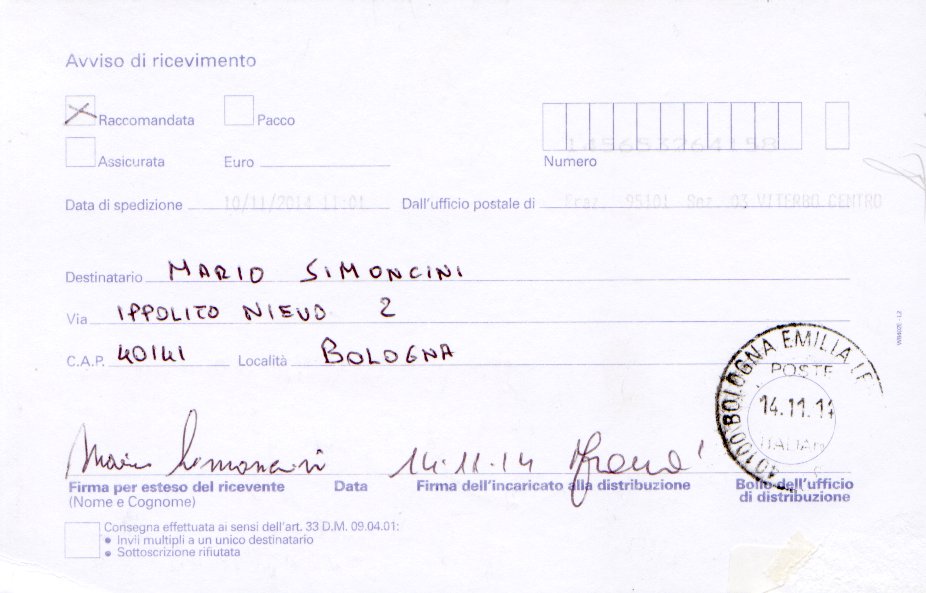 Avviso di ricevimento
Raccomandata Pacco
Assicurata Euro Numero
Data di spedizione 10/11/2014 11:01 Dall'ufficio postale di Fraz. 95101 Sez. 03 VITERBO CENTRO
Destinatario MARIO SIMONCINI
Via IPPOLITO NIEVO 2
C.A.P. 40141 Località BOLOGNA
40100 BOLOGNA EMILIA
POSTE
14.11.14
ITALIANE
Mario Simoncini 14.11.14
Firma per esteso del ricevente Data Firma dell'incaricato alla distribuzione Bollo dell'ufficio
(Nome e Cognome) di distribuzione
Consegna effettuata ai sensi dell'art. 33 D.M. 09.04.01:
• Invii multipli a un unico destinatario
• Sottoscrizione rifiutata